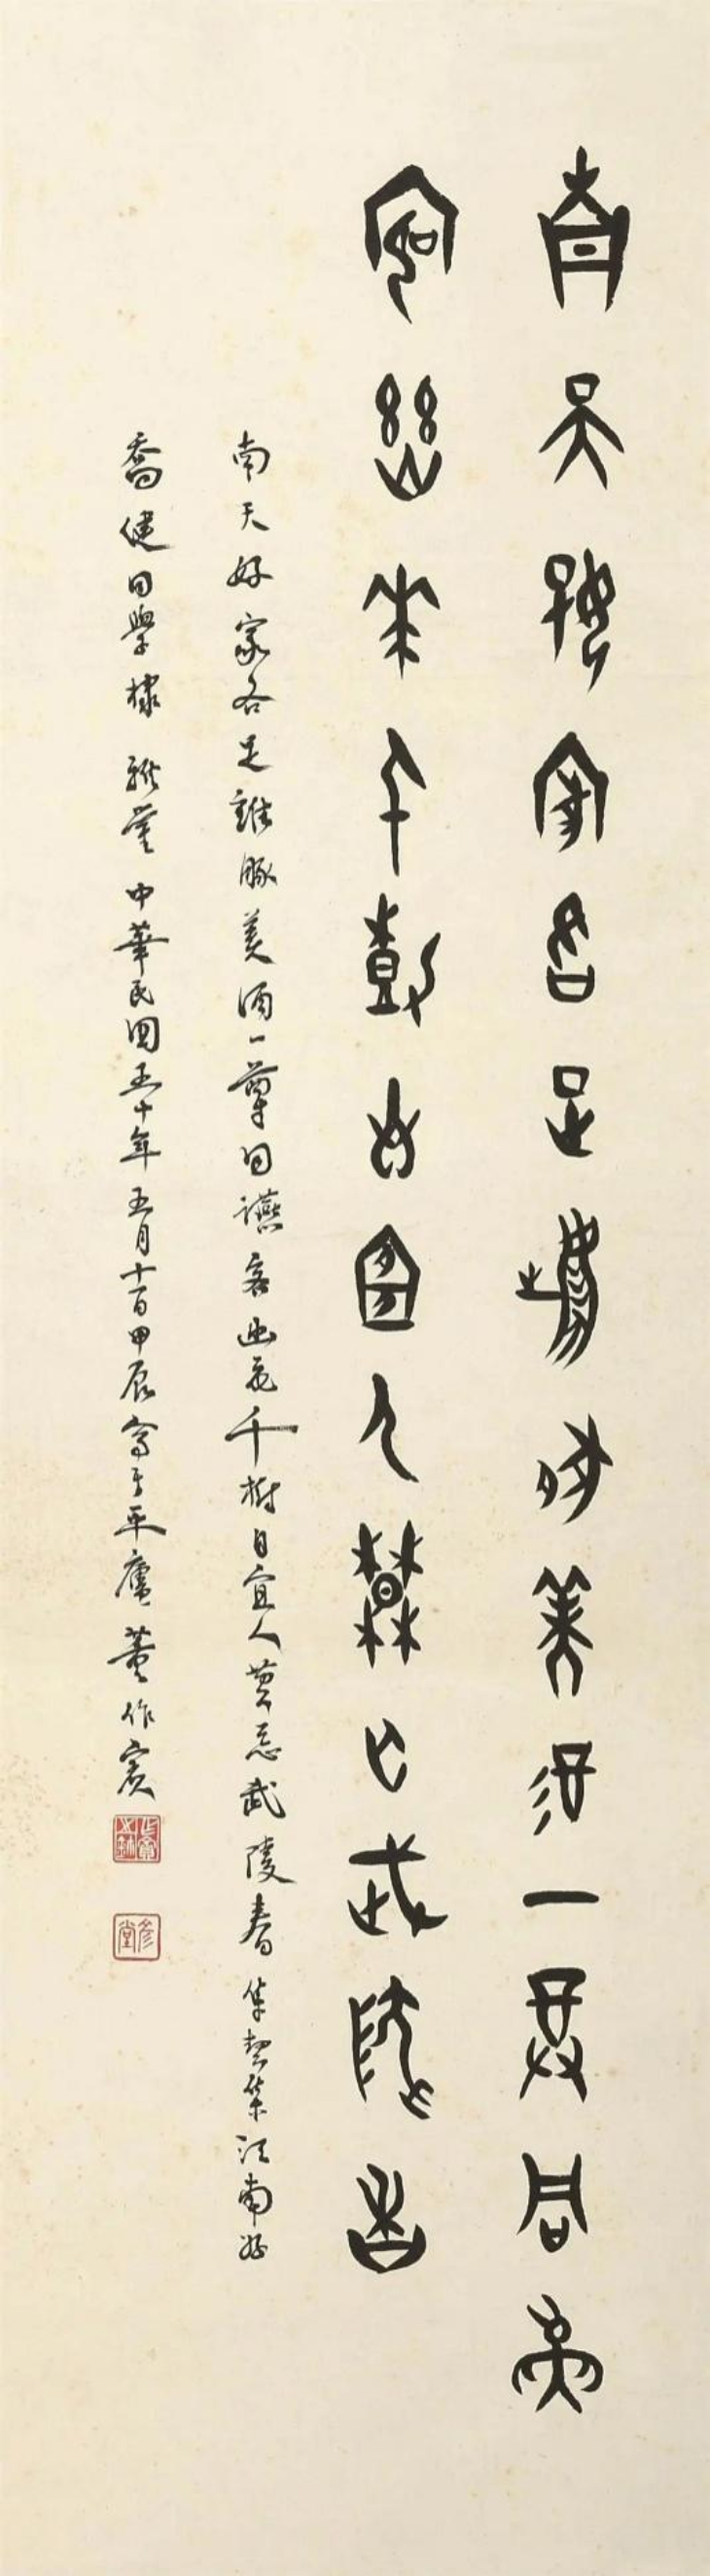 南天好家各足雞豚美酒一尊同燕
客幽花千樹自宜人莫忘武陵春
南天好家各足雞豚美酒一尊同讌客幽花千樹自宜人莫忘武陵春 集契集江南好
喬健同學棣 雅鑒 中華民國五十年五月十一日甲辰寫于平廬 董作賓
彥堂